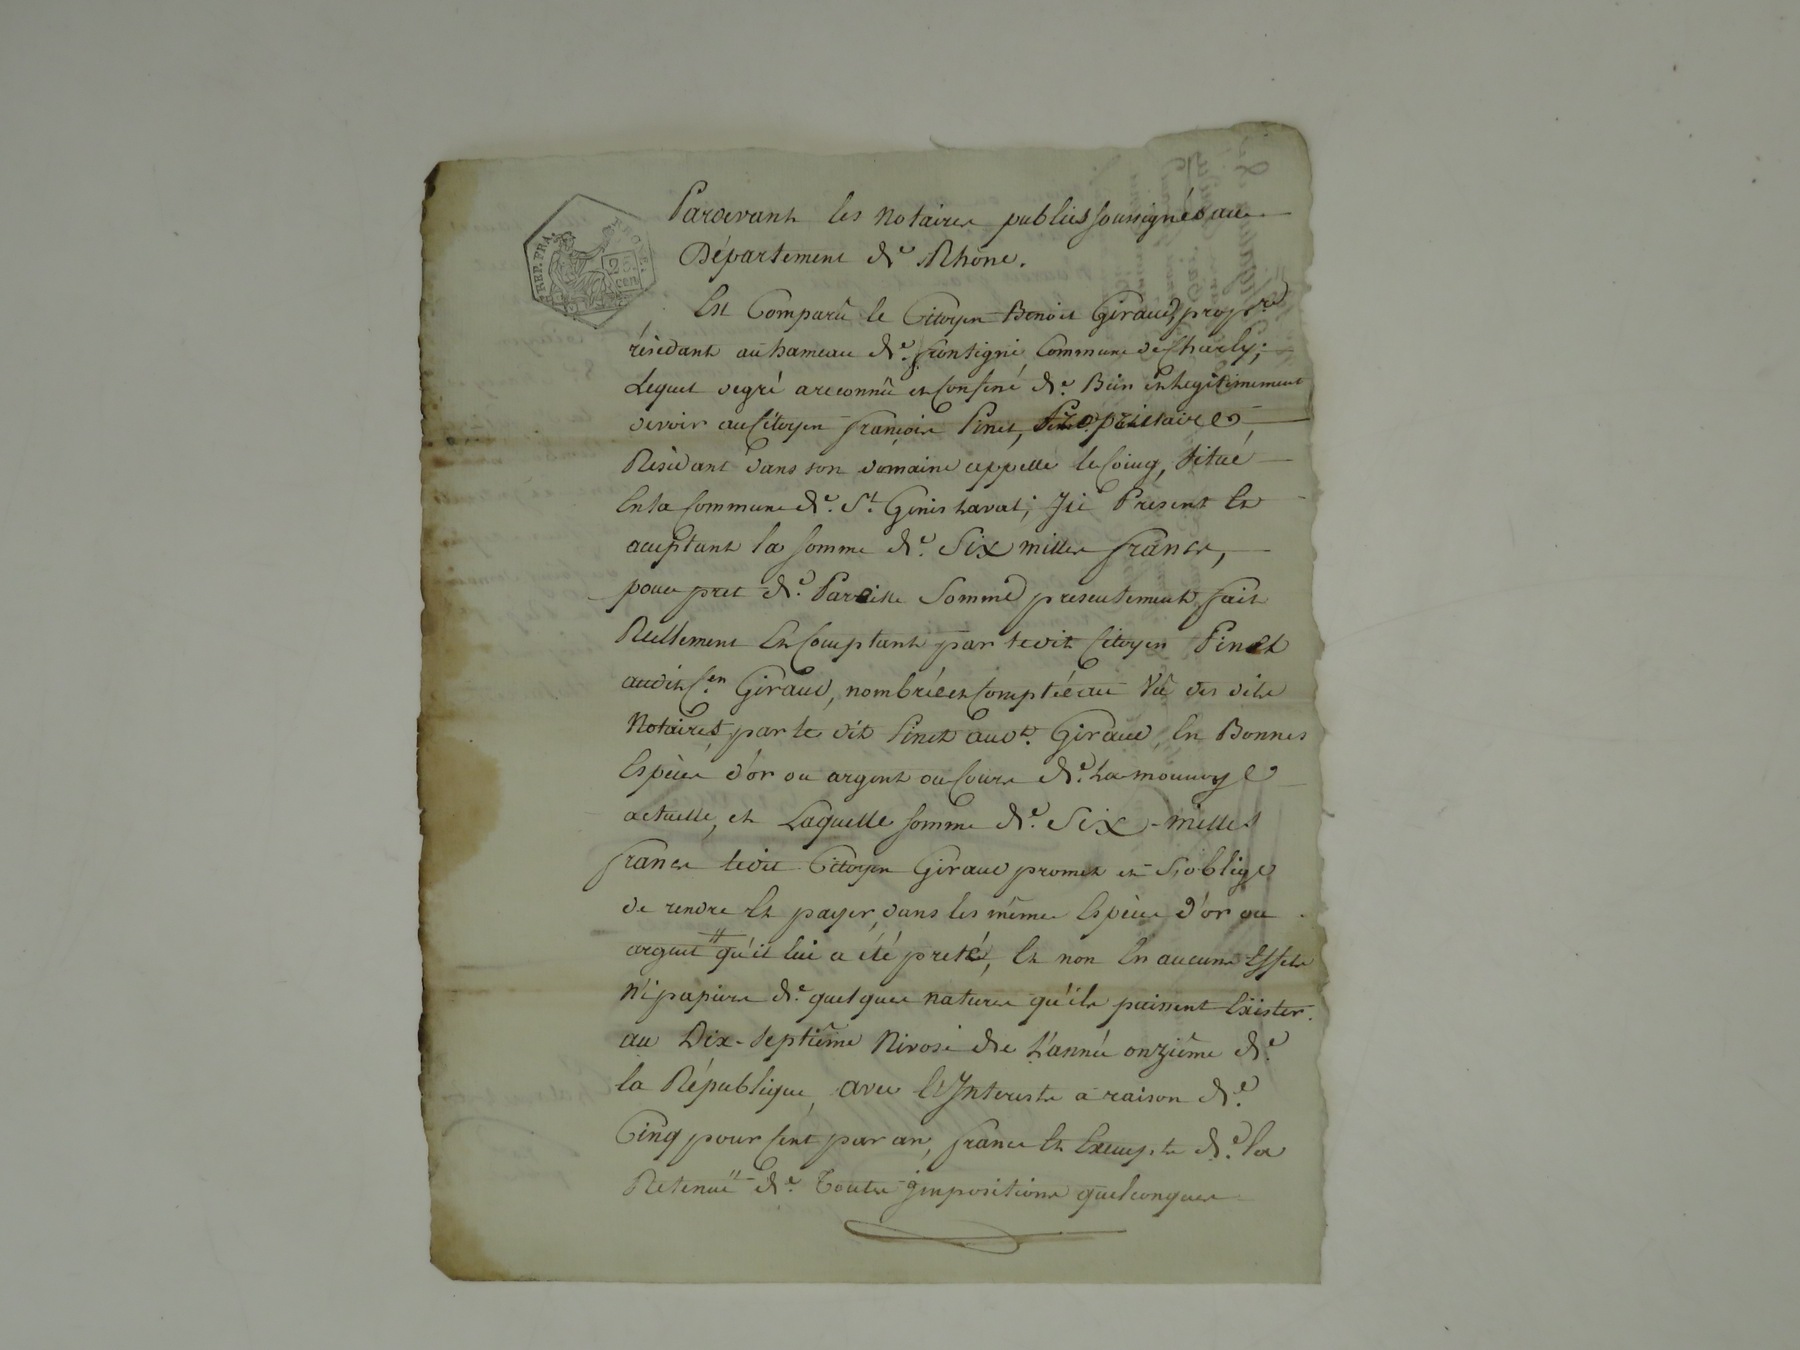 REP. FRA. 25 CEN
Pardevant les Notaires publics soussignés au
Département de Rhône.
Est Comparû le Citoyen Benoit Giraud, prop.re
résidant au hameau de frontigni Commune de Charly;
Lequel degré a reconnû et Confessé de Bien et Legitimement
devoir au Citoyen françois Pinet, Propriétaire
Résidant dans son domaine appellé le Coing, Situé
En la Commune de St. Genis Laval; Ici Présent Et
aceptant la somme de Six milles francs,
pour pret de Pareille Somme presentement fait
Réellement Et Comptant par ledit Citoyen Pinet
audit C.en Giraud, nombrée et Comptée au Vû des dits
Notaires, par le dit Pinet aud.t Giraud, En Bonnes
Espèces d'or ou argent au Cours de La monnoye
actuelle, et Laquelle somme de Six-milles
francs ledit Citoyen Giraud promet et S'oblige
de rendre Et payer, dans les mêmes Espèces d'or ou
argent qu'il lui a été preté, Et non En aucuns Effets
ni papiers de quelques natures qu'ils puissent Exister.
au Dix-Septième Nivose de L'année onzième de
la République, avec l'Interests a raison de
Cinq pour Cent par an, francs Et Exempts de la
Retenue de Toutes Impositions quelconques